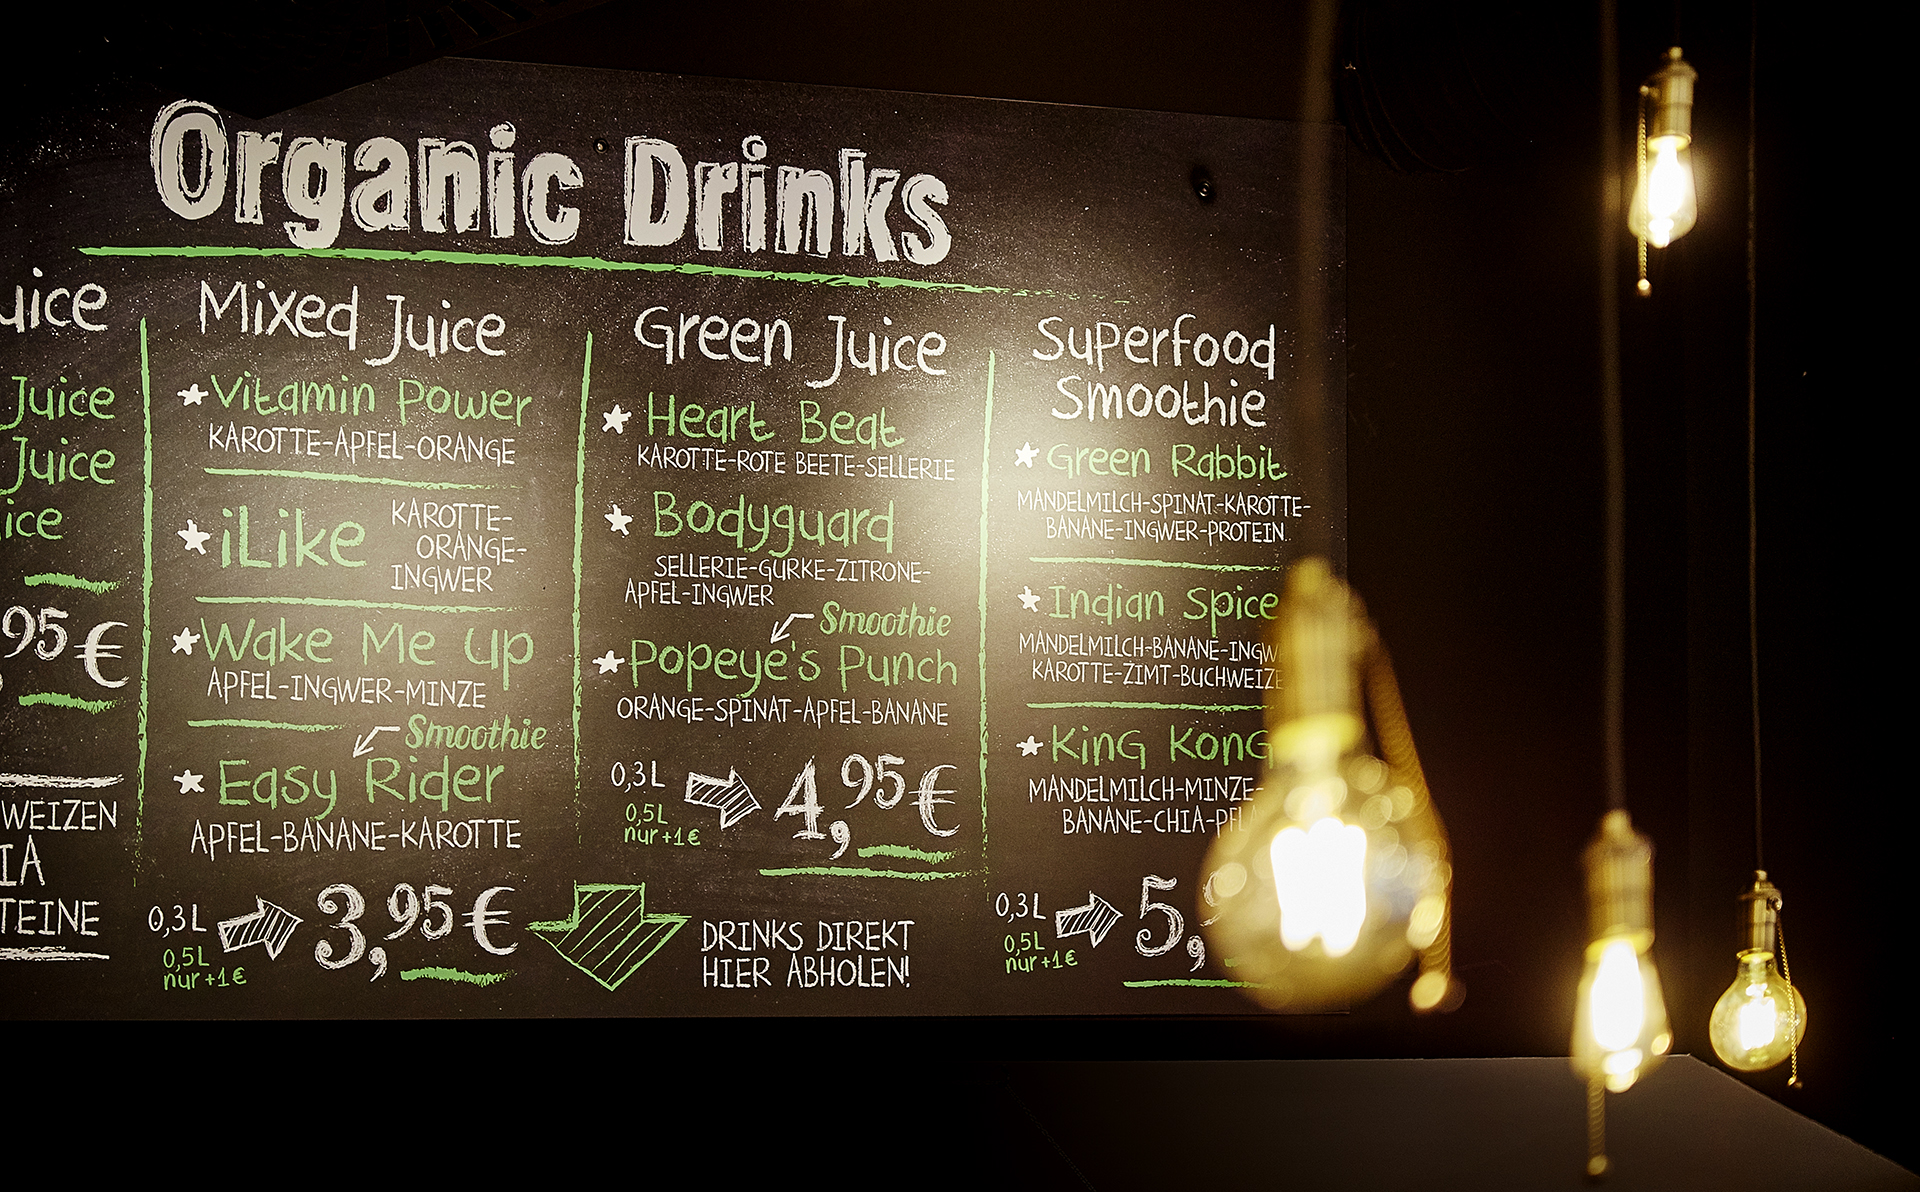 Organic Drinks
Juice
Juice
95 €
WEIZEN
Mixed Juice
Vitamin Power
KAROTTE-APFEL-ORANGE
iLike
KAROTTE-
ORANGE-
INGWER
Wake Me Up
APFEL-INGWER-MINZE
Smoothie
Easy Rider
APFEL-BANANE-KAROTTE
0,3 L 3,95 €
0,5 L
nur +1 €
Green Juice
Heart Beat
KAROTTE-ROTE BEETE-SELLERIE
Bodyguard
SELLERIE-GURKE-ZITRONE-
APFEL-INGWER
Smoothie
Popeye's Punch
ORANGE-SPINAT-APFEL-BANANE
0,3 L 4,95 €
0,5 L
nur +1 €
DRINKS DIREKT
HIER ABHOLEN!
Superfood
Smoothie
Green Rabbit
MANDELMILCH-SPINAT-KAROTTE-
BANANE-INGWER-PROTEIN
Indian Spice
MANDELMILCH-BANANE-
KAROTTE-ZIMT-
King Kong
MANDELMILCH-MINZE-
BANANE-CHIA-
0,3 L 5,
0,5 L
nur +1 €